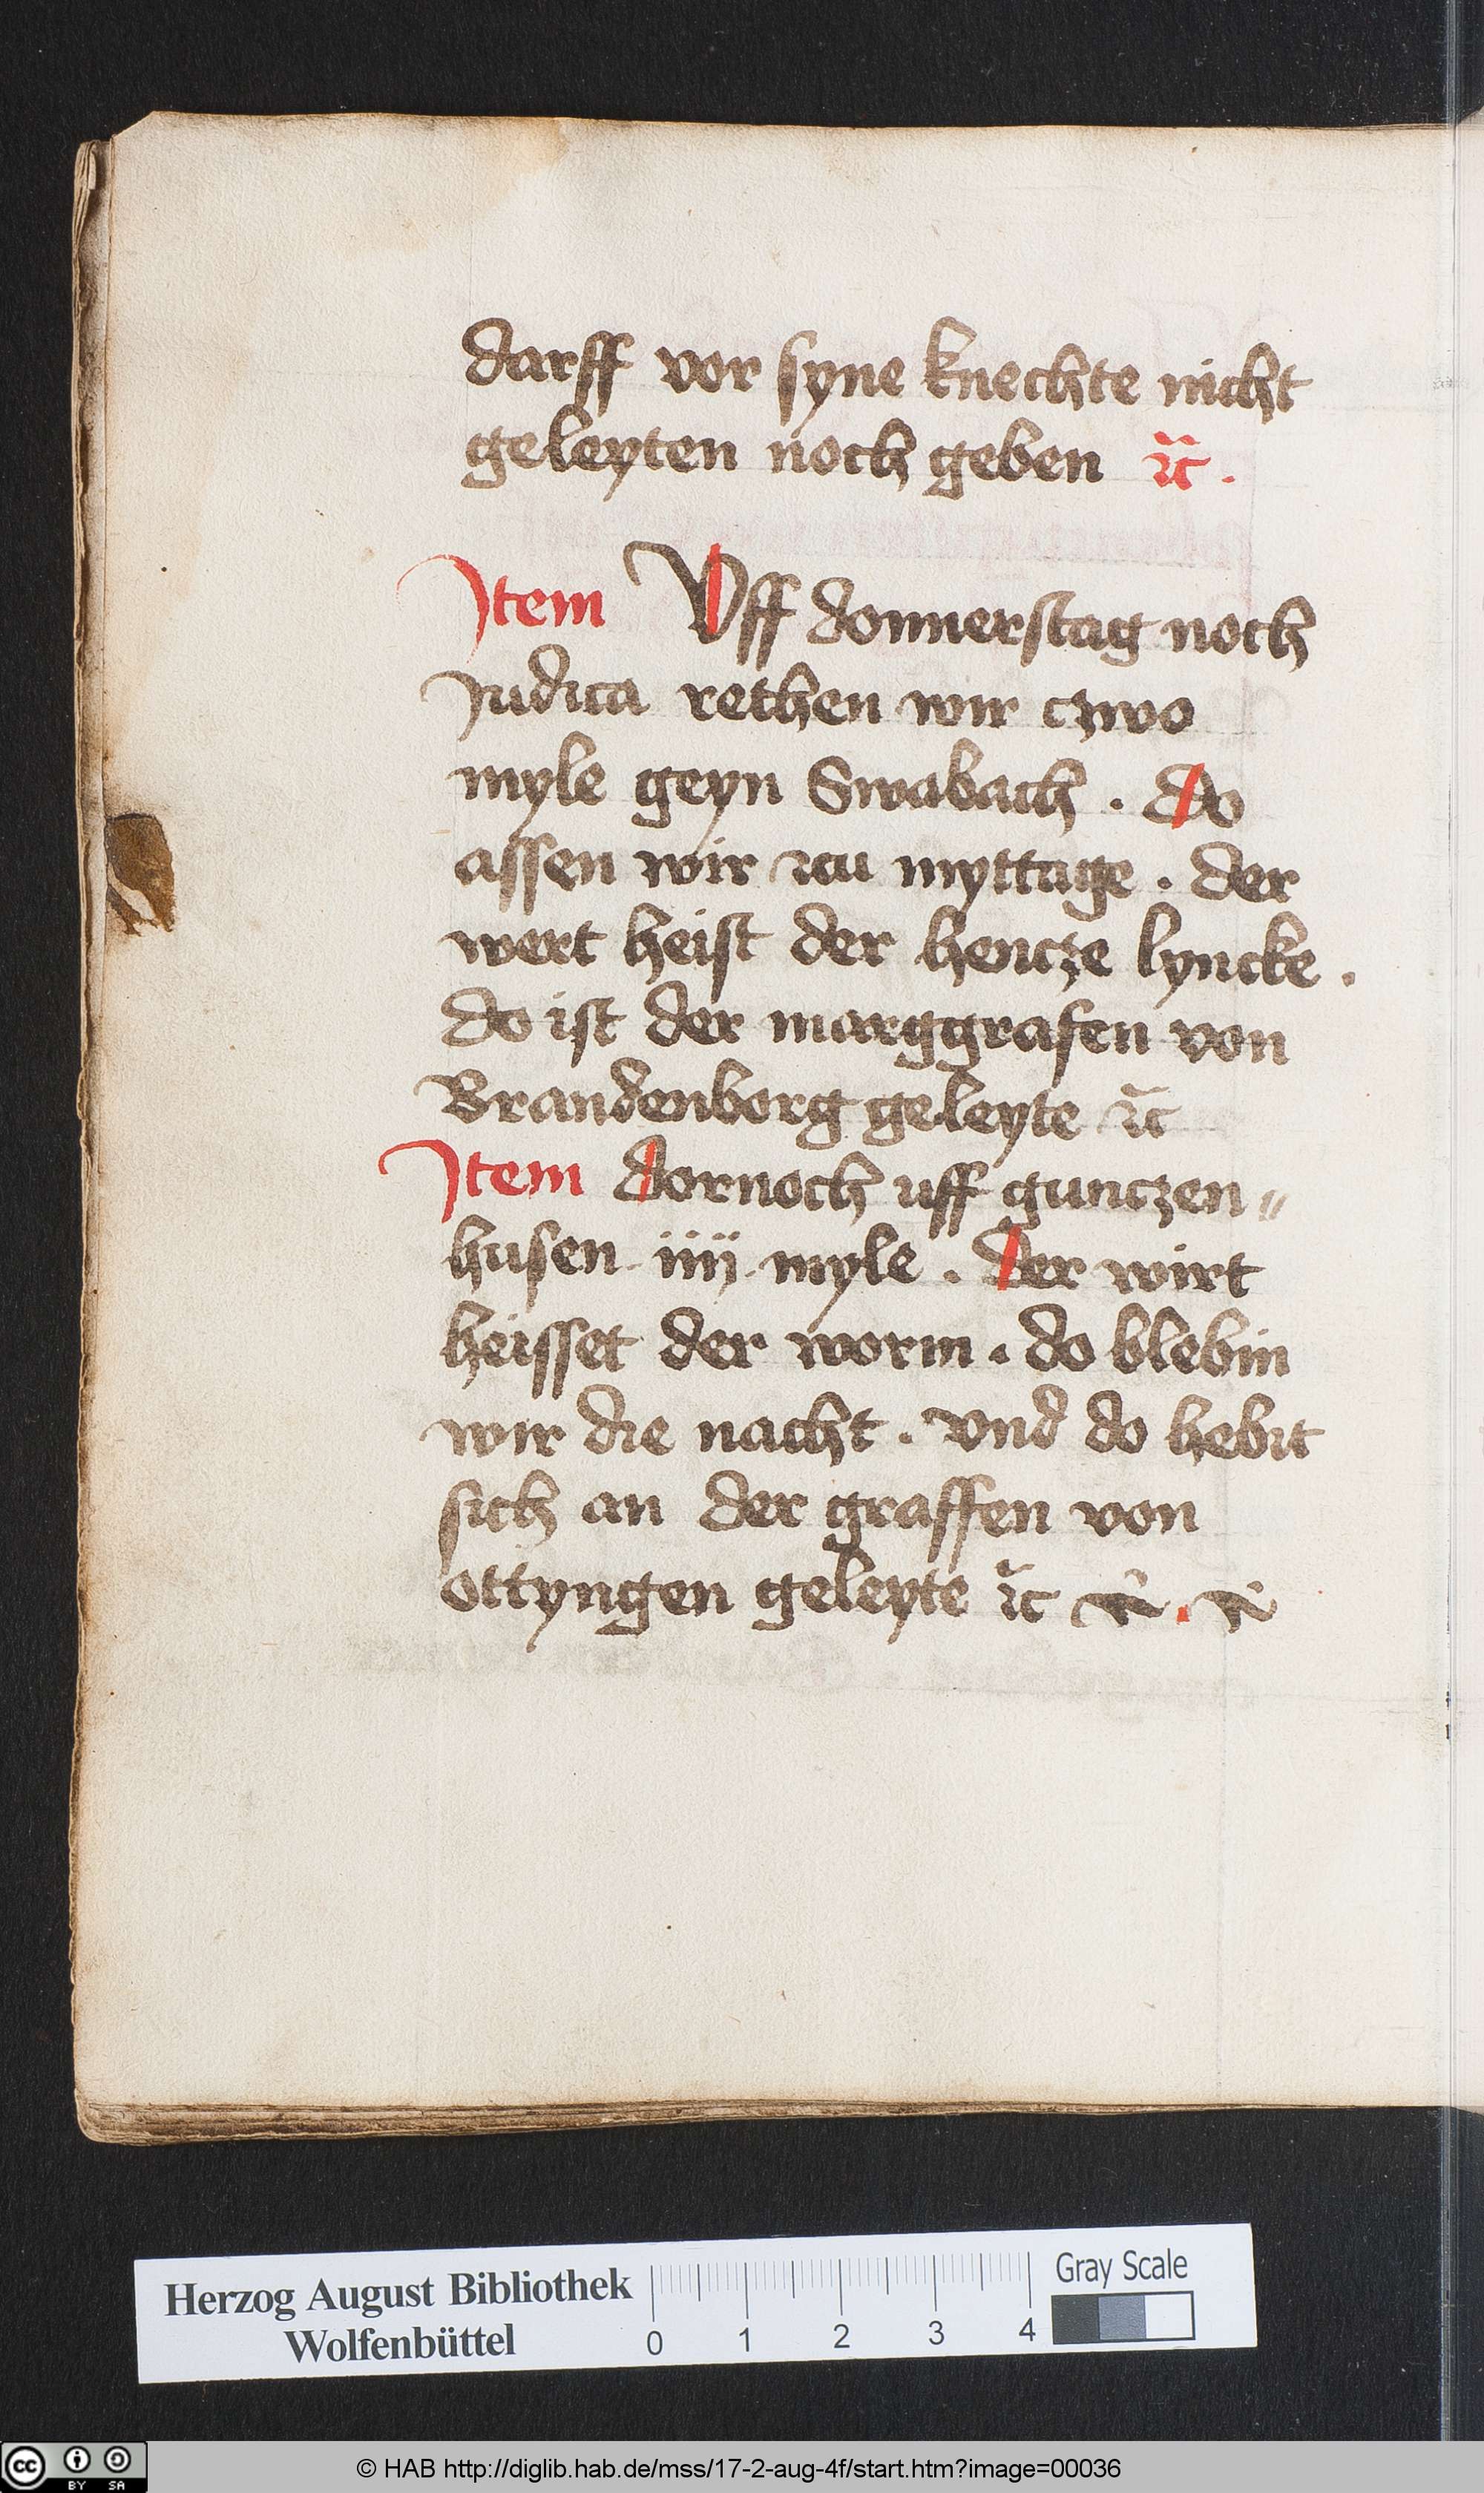 darff vor syne knechte nicht
geleyten noch geben ⁊c̃ .
Item Vff donnerstag noch
Judica rethen wir czwo
myle geyn Swabach . Do
assen wir zcu myttage . der
wert heist der hencze lyncke .
do ist der marggrafen von
Brandenborg geleyte ⁊c̃
Item dornoch uff gunczen〃
husen iiij myle . der wirt
heisset der worm . do blebin
wir die nacht . vnd do hebit
sich an der graffen von
ottyngen geleyte ⁊c̃
Herzog August Bibliothek
Wolfenbüttel
0 1 2 3 4
Gray Scale
cc BY SA
© HAB http://diglib.hab.de/mss/17-2-aug-4f/start.htm?image=00036